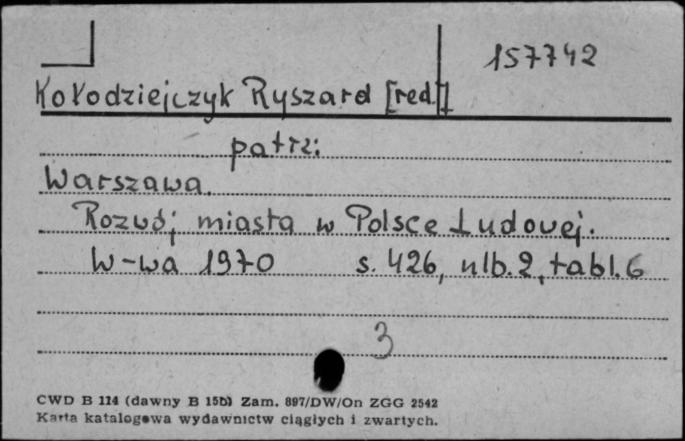 157742
Kołodziejczyk Ryszard [red.]
patrz:
Warszawa.
Rozwój miasta w Polsce Ludowej.
W-wa 1970 s. 426, nlb. 2, tabl. 6
3
CWD B 114 (dawny B 15b) Zam. 897/DW/On ZGG 2542
Karta katalogowa wydawnictw ciągłych i zwartych.